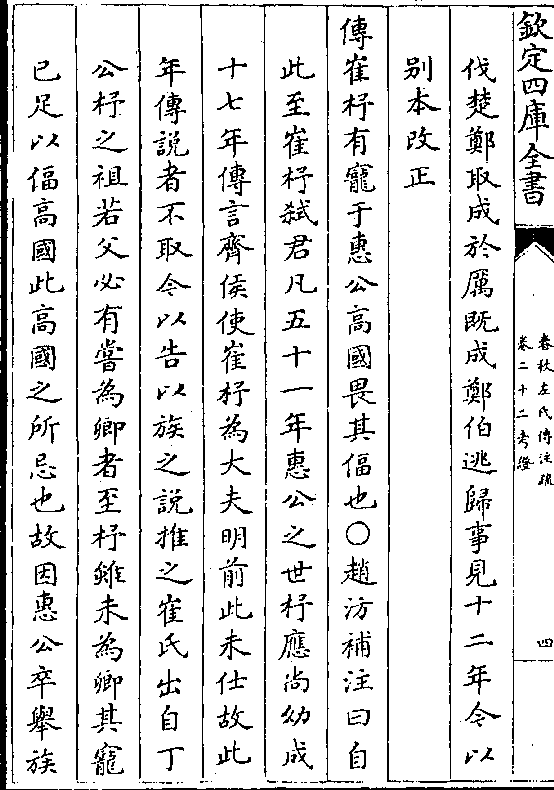 欽定四庫全書
春秋左氏傳注疏
卷二十二考證
四
伐楚鄭取成於厲既成鄭伯逃歸事見十二年令以
别本改正
傳崔杼有寵于惠公高國畏其偪也○趙汸補注曰自
此至崔杼弑君凡五十一年惠公之世杼應尚幼成
十七年傳言齊侯使崔杼為大夫明前此未仕故此
年傳說者不取今以告以族之說推之崔氏出自丁
公杼之祖若父必有嘗為卿者至杼雖未為卿其寵
已足以偪高國此高國之所忌也故因惠公卒舉族